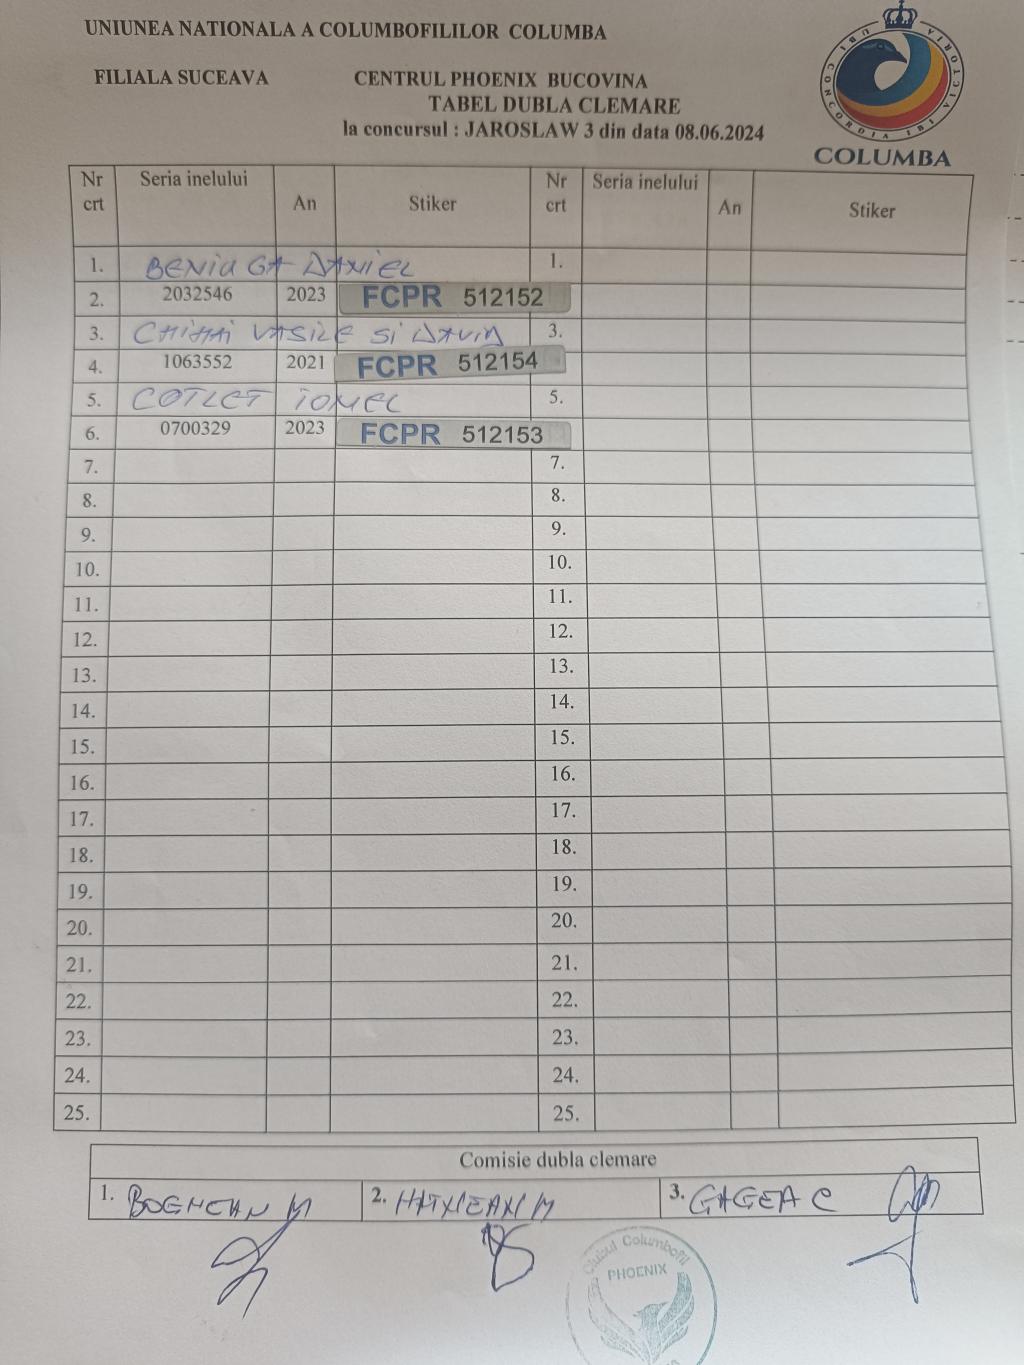 UNIUNEA NATIONALA A COLUMBOFILILOR COLUMBA
FILIALA SUCEAVA CENTRUL PHOENIX BUCOVINA
TABEL DUBLA CLEMARE
la concursul : JAROSLAW 3 din data 08.06.2024
UBI CONCORDIA IBI VICTORIA
COLUMBA
Nr crt Seria inelului An Stiker Nr crt Seria inelului An Stiker
1. BENIUGA DANIEL 1.
2. 2032546 2023 FCPR 512152
3. CHIHAI VASILE SI DAVID 3.
4. 1063552 2021 FCPR 512154
5. COTLET IONEL 5.
6. 0700329 2023 FCPR 512153
7. 7.
8. 8.
9. 9.
10. 10.
11. 11.
12. 12.
13. 13.
14. 14.
15. 15.
16. 16.
17. 17.
18. 18.
19. 19.
20. 20.
21. 21.
22. 22.
23. 23.
24. 24.
25. 25.
Comisie dubla clemare
1. M 2. M 3. GAGEA C
Clubul Columbofil
PHOENIX